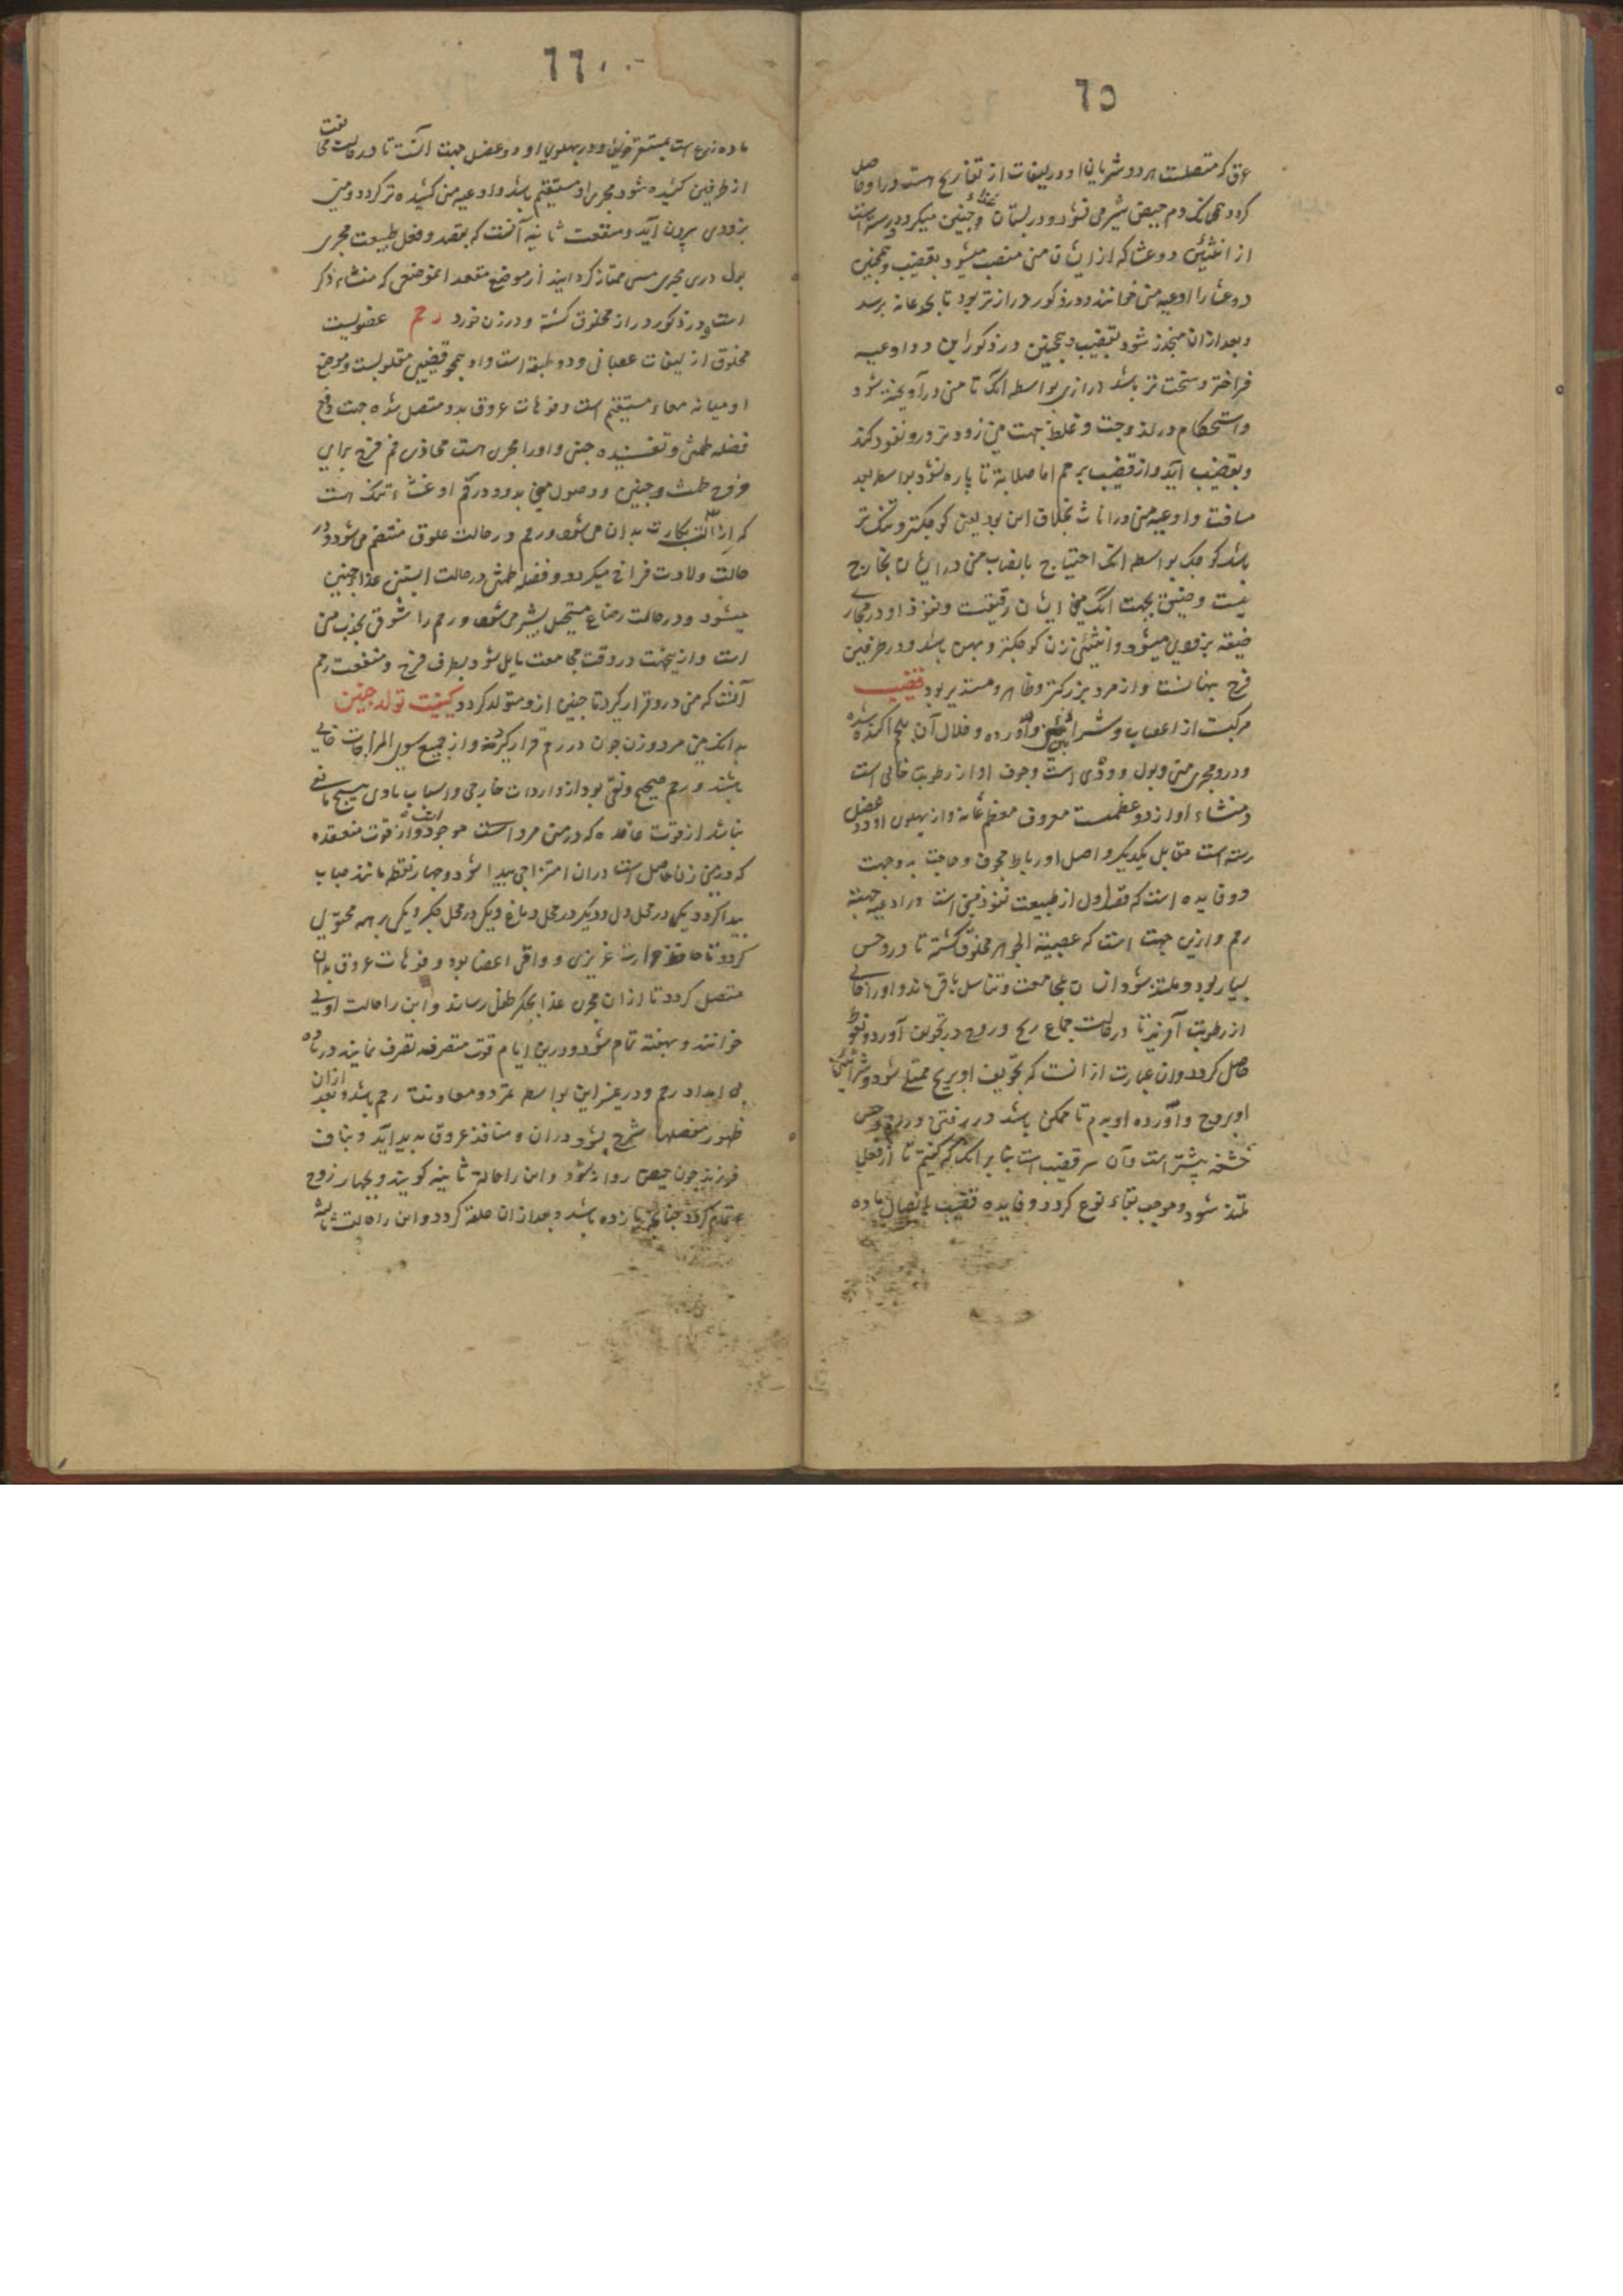 ٦٥
عرق که متصلست هر دو شریان او در لیفات از تفاریج هست در او حاصل
گردد همچنانک دم حیض شیر می شود و در پستان غذاء جنین میگردد و رسته است
از انثیین دو وعا که از ایشان منی منصب میشود بقضیب و همچنین
دو وعا را اوعیه منی خوانند و در ذکور درازتر بود تا بحد عانه برسد
و بعد ازان منجذر شود بقضیب و همچنین در ذکور این دو اوعیه
فراختر و سخت تر باشد درازی بواسطه آنک تا منی در آویخته شود
و استحکام در لزوجت و غلظ جهت منی زودتر درو نفوذ کند
و بقضیب آید و از قضیب برحم اما صلابة تا پاره نشود بواسطه بعد
مسافت و اوعیه منی در اناث بخلاف این بود یعنی کوچکتر و تنک تر
باشد کوچک بواسطه آنک احتیاج بانصاب منی در ایشان بخارج
نیست و ضیق بجهت آنک منی ایشان رقیقست و نفوذ او در مجاری
ضیقه بزودی میشود و انثیین زن کوچکتر و پهن باشد و در طرفین
فرج پنهانست و از مرد بزرکتر و ظاهر و مستدیر بود قضیب
مرکبست از اعصاب و شرائین و آورده و خلال آن بلحم آکنده شده
و درو مجری منی و بول و ودی است و جوف او از رطوبت خالی است
و منشاء او از دو عظمست معروف بعظم عانه و از پهلوی او دو عضل
رسته است مقابل یکدیکر و اصل او رباط مجوف و حاجت به وجهت
دو فایده است که قصد اول از طبیعت نفوذ منی است در اوعیه جهة
رحم و ازین جهت است که عصبیة الجوهر مخلوق گشته تا درو حس
بسیار بود و ملتذ شود انسان بمجامعت و تناسل باقی ماند و او را خالی
از رطوبت آفرید تا در حالت جماع ریح و روح در تجویف آورد و نعوظ
حاصل کردد و ان عبارت از انست که تجویف او بریح ممتلی شود و شرائین
او بروح و آورده او بدم تا ممکن باشد در رفتن در رحم و حس
حشفه بیشتر است و آن سر قضیب است بنا بر انک که گفتیم تا از فعل
ملتذ شود و موجب بقاء نوع کردد و فایده قضیب ایصال ماده
٦٦
ماده زرع است بمستقر خویش و در پهلوی او دو عضل جهت آنست تا در حالت مجامعت
از طرفین کشیده شود مجری او مستقیم باشد و اوعیه منی کشیده تر کردد و منی
بزودی بیرون آید و منفعت ثانیه آنست که بقصد و فعل طبیعت مجری
بول در مجری منی ممتاز کرداند از موضع مقعد انموضعی که منشاء ذکر
است و در ذکور دراز مخلوق کشته و در زن خورد رحم عضویست
مخلوق از لیفات عصبانی و دو طبقه است و او همچو قضیب مقلوبست و موضع
او میانه معاء مستقیم است و فوهات عروق بدو متصل شده جهت دفع
فضله طمثی و تغذیه جنین و او را مجری است محاذی فم فرج برای
خروج طمث و جنین و وصول منی بدو و در رقم او غشاء تنک است
که ازالت بکارت بدان می شود و رحم در حالت علوق منضم می شود و در
حالت ولادت فراخ میکردد و فضله طمثی در حالت آبستنی غذاء جنین
میشود و در حالت رضاع مستحیل بشیر می شود و رحم را شوق بجذب منی
است و ازینجهت در وقت مجامعت مایل شود بطرف فرج و منفعت رحم
آنست که منی درو قرار گیرد تا جنین ازو متولد کردد کیفیت تولد جنین
بدانک منی مرد و زن چون در رحم قرار گرفته و از جمیع سوء المزاجات خالی
باشد و رحم صحیح و نقی بود از واردات خارجی و اسباب بادی هیچ مانعی
نباشد از قوت عاقده که در منی مرد است موجود و از قوت منعقده
که در منی زن حاصل است دران امتزاجی پیدا شود و چهار نقطه مانند حباب
پیدا گردد یکی در محل دل و دیگر در محل دماغ و یکی در محل جکر و یکی بر همه محتوی
گردد تا حافظ حرارت غریزی و واقی اعضا بود و فوهات عروق بدان
متصل گردد تا ازان مجری غذا بجکر طفل رساند و این را حالت اولی
خوانند و بهفته تمام شود و درین ایام قوت متصرفه تصرف نماید در ماده
بی امداد رحم و در غیر این بواسطه تمرد و معاونت رحم باشد و بعد ازان
ظهور مفصلها مشرح بشود دران و منافذ عروق پدید آید و بناف
فرزند خون حیض روانه شود و این را حالة ثانیه کویند و بچهار روز
تمام کردد چنانچه یازده باشد و بعد ازان علقه کردد و این را حالت ثالثه